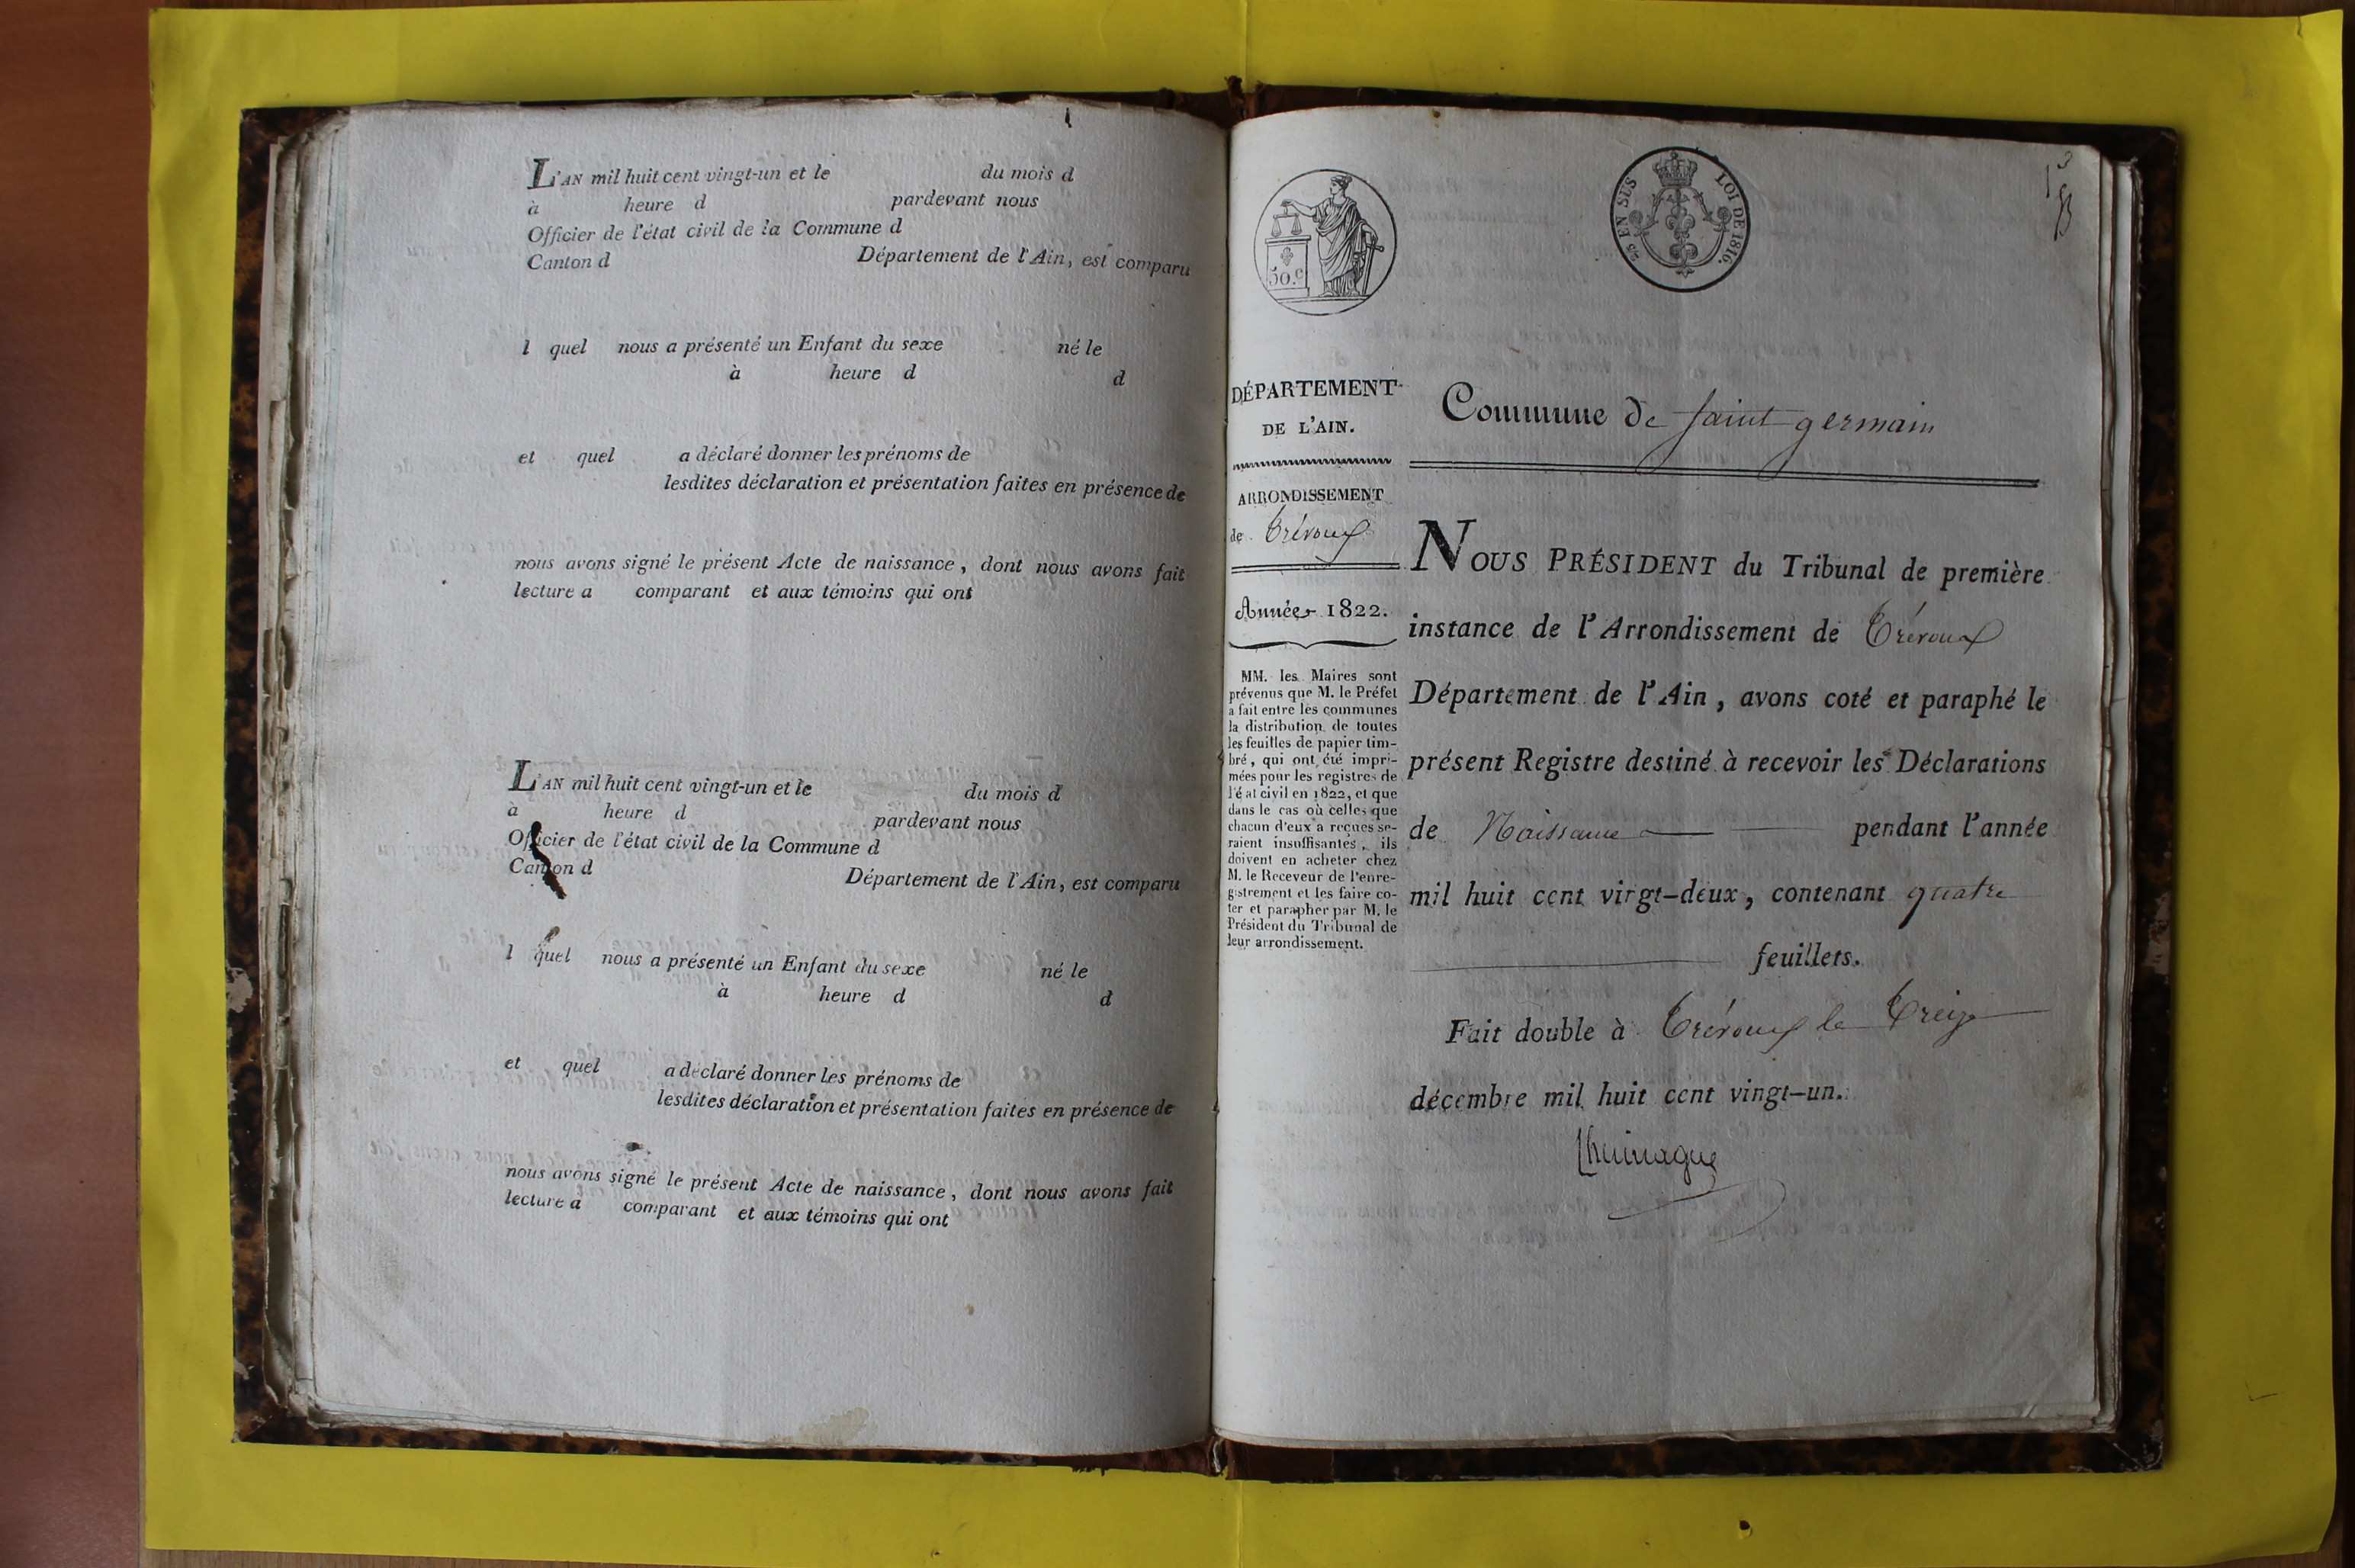 L'AN mil huit cent vingt-un et le du mois d
à heure d pardevant nous
Officier de l'état civil de la Commune d
Canton d Département de l'Ain, est comparu
l quel nous a présenté un Enfant du sexe né le
à heure d d
et quel a déclaré donner les prénoms de
lesdites déclaration et présentation faites en présence de
nous avons signé le présent Acte de naissance, dont nous avons fait
lecture a comparant et aux témoins qui ont
L'AN mil huit cent vingt-un et le du mois d
à heure d pardevant nous
Officier de l'état civil de la Commune d
Canton d Département de l'Ain, est comparu
l quel nous a présenté un Enfant du sexe né le
à heure d d
et quel a déclaré donner les prénoms de
lesdites déclaration et présentation faites en présence de
nous avons signé le présent Acte de naissance, dont nous avons fait
lecture a comparant et aux témoins qui ont
50.c
25 EN SUS LOI DE 1816.
DÉPARTEMENT
DE L'AIN.
ARRONDISSEMENT
de Trévoux
Année 1822.
MM. les Maires sont
prévenus que M. le Préfet
a fait entre les communes
la distribution de toutes
les feuilles de papier tim-
bré, qui ont été impri-
mées pour les registres de
l'état civil en 1822, et que
dans le cas où celles que
chacun d'eux a reçues se-
raient insuffisantes, ils
doivent en acheter chez
M. le Receveur de l'enre-
gistrement et les faire co-
ter et parapher par M. le
Président du Tribunal de
leur arrondissement.
Commune de saint germain
NOUS PRÉSIDENT du Tribunal de première
instance de l'Arrondissement de Trévoux
Département de l'Ain, avons coté et paraphé le
présent Registre destiné à recevoir les Déclarations
de Naissance pendant l'année
mil huit cent vingt-deux, contenant quatre
feuillets.
Fait double à Trévoux le Treize
décembre mil huit cent vingt-un.